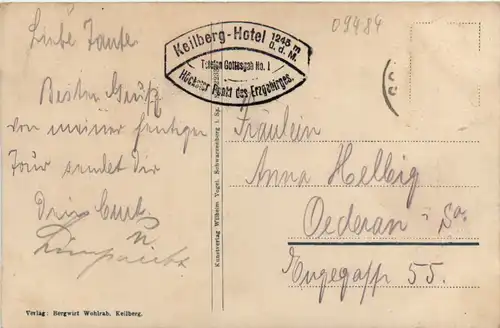 09484
Keilberg-Hotel 1245 m
ü.d.M.
Telefon Gottesgab No. 1
Höchster Punkt des Erzgebirges.
Liebe Tante.
Besten Gruß
von meiner heutigen
Tour sendet dir
dein Curt.
Fräulein
Anna Helbig
Oederan i. Sa.
Engegasse 55.
Kunstverlag Wilhelm Vogel, Schwarzenberg i. Sa.
Verlag: Bergwirt Wohlrab, Keilberg.